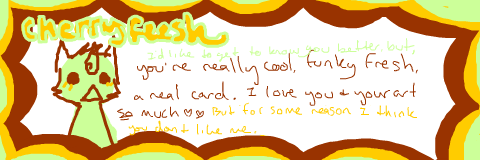 cherryfresh
I'd like to get to know you better, but,
you're really cool, funky fresh,
a real card. I love you & your art
so much ♡♡ But for some reason I think
you don't like me.